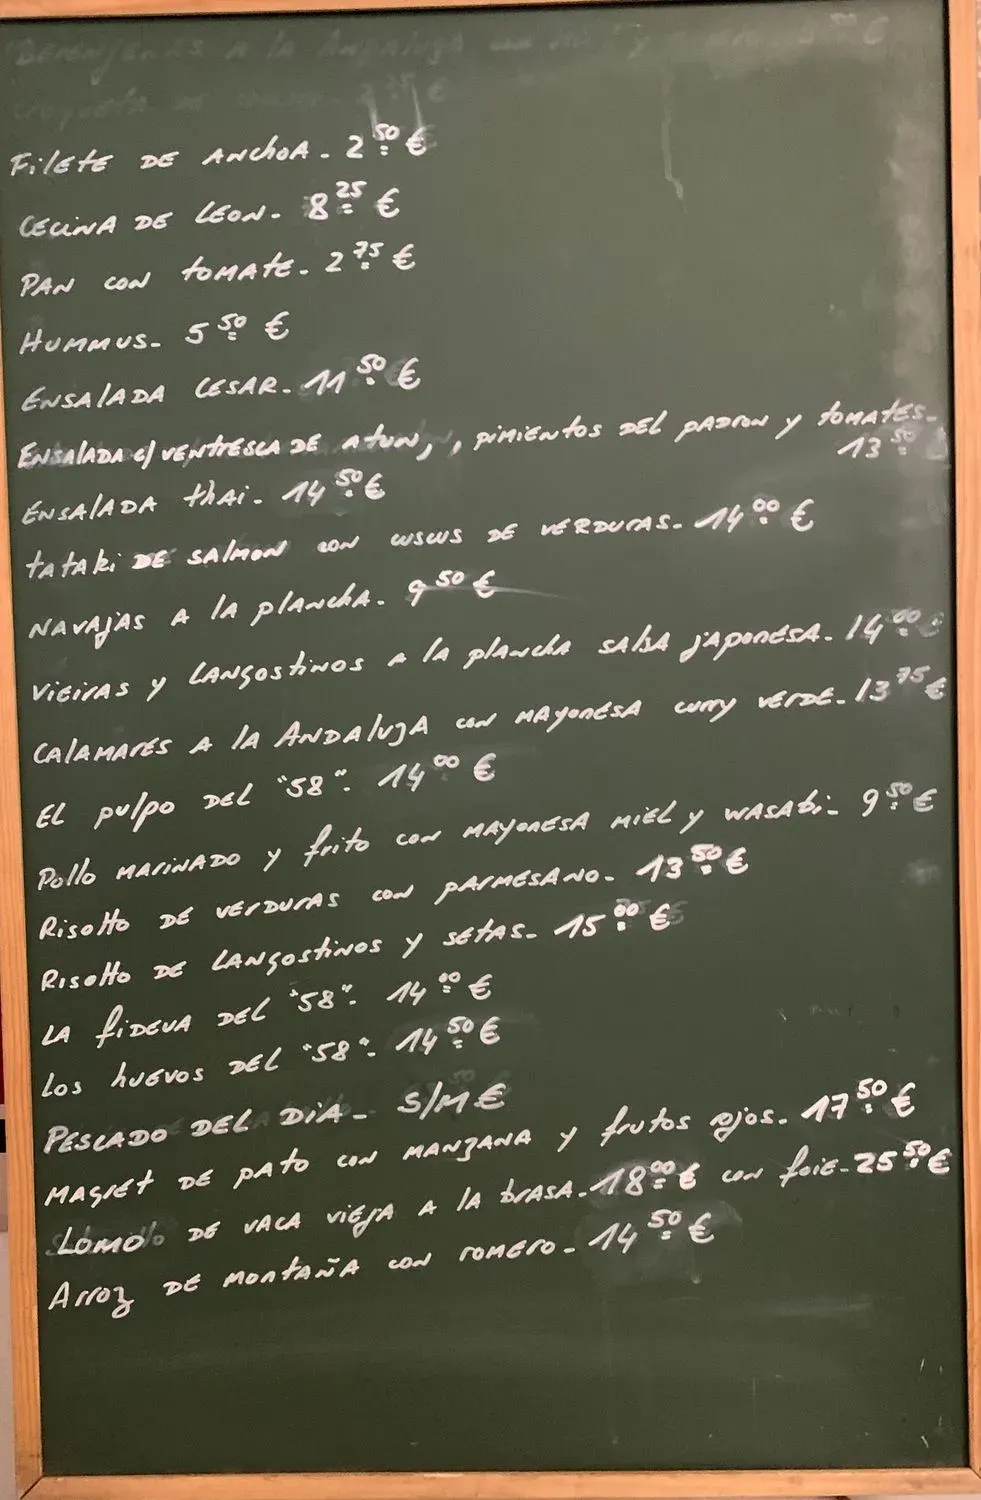 BERENJENAS A LA ANDALUZA
croqueta
FilETE DE ANchoA. 2,50 €
CECINA DE LEON. 8,25 €
PAN CON tOMAtE. 2,75 €
HUMMUS. 5,50 €
ENSALADA CESAR. 11,50 €
ENSALADA c/ VENTRESCA DE ATUN, , PIMIENTOS DEL PADRON y TOMATES.
13,50
ENSALADA thAi. 14,50 €
tAtAki DE SALMON CON CUSCUS DE VERDURAS. 14,00 €
NAVAJAS A lA plANchA. 9,50 €
VIEIRAS y LANGOSTINOS A lA plANchA SALSA JAPONESA. 14,00 €
CALAMARES A lA ANDALUZA CON MAYONESA curry VERDE. 13,75 €
El pulpo DEL "58". 14,00 €
Pollo MARINADO y frito CON MAYONESA MIEL y WASAbi. 9,50 €
RisoHo DE VERDURAS CON PARMESANO. 13,50 €
RisoHo DE LANGOSTINOS y SETAS. 15,00 €
LA fiDEUA DEL "58". 14,00 €
Los huEVOS DEL "58". 14,50 €
PESCADO DEL DIA. S/M €
MAGRET DE PATO CON MANZANA y frutos rojos. 17,50 €
LOMO DE VACA VIEJA A lA bRASA. 18,00 € CON foiE. 25,50 €
Arroz DE MONTAÑA CON ROMERO. 14,50 €